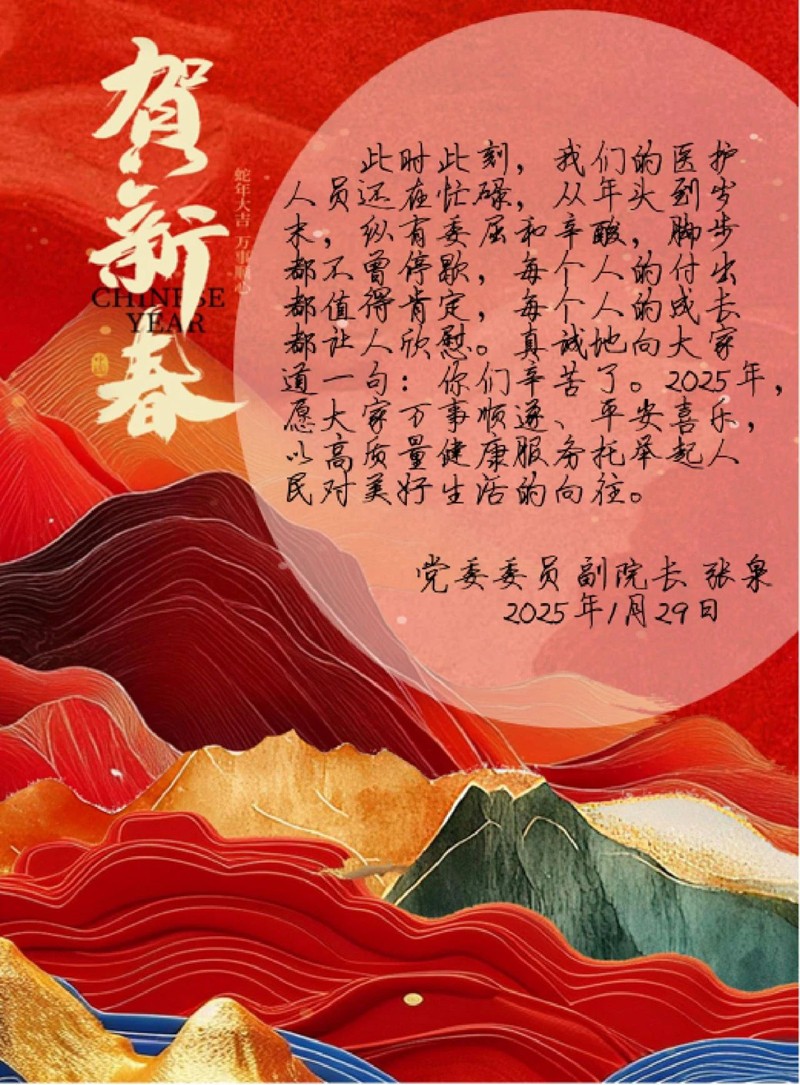 贺新春
蛇年大吉 万事顺心
CHINESE
YEAR
此时此刻，我们的医护
人员还在忙碌，从年头到岁
末，纵有委屈和辛酸，脚步
都不曾停歇，每个人的付出
都值得肯定，每个人的成长
都让人欣慰。真诚地向大家
道一句：你们辛苦了。2025年，
愿大家万事顺遂、平安喜乐，
以高质量健康服务托举起人
民对美好生活的向往。
党委委员 副院长 张泉
2025年1月29日